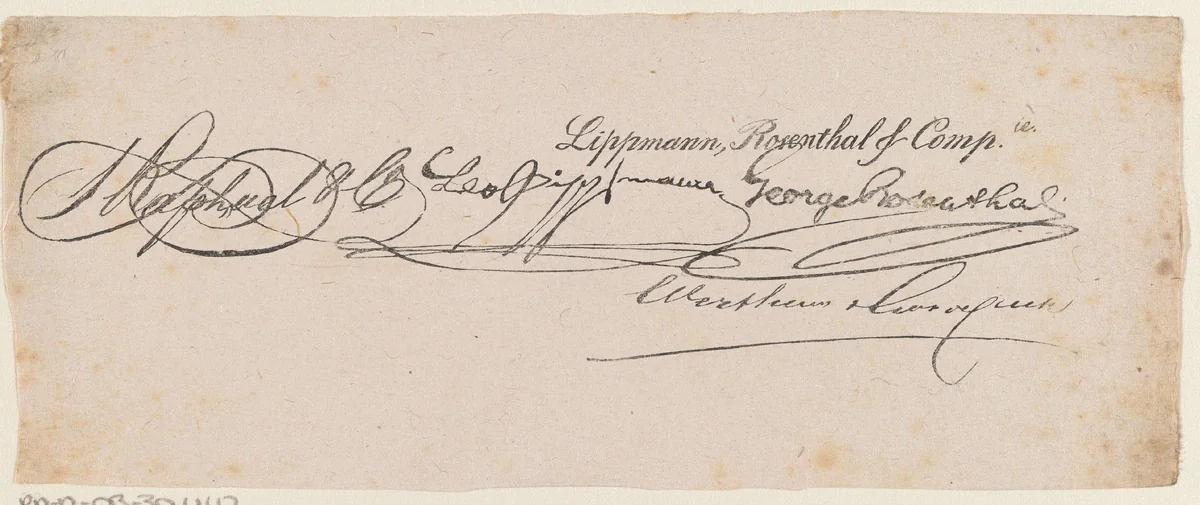 Lippmann, Rosenthal & Comp.ie.
Raphael & Co Leo Lippmann George Rosenthal
Wertheim &